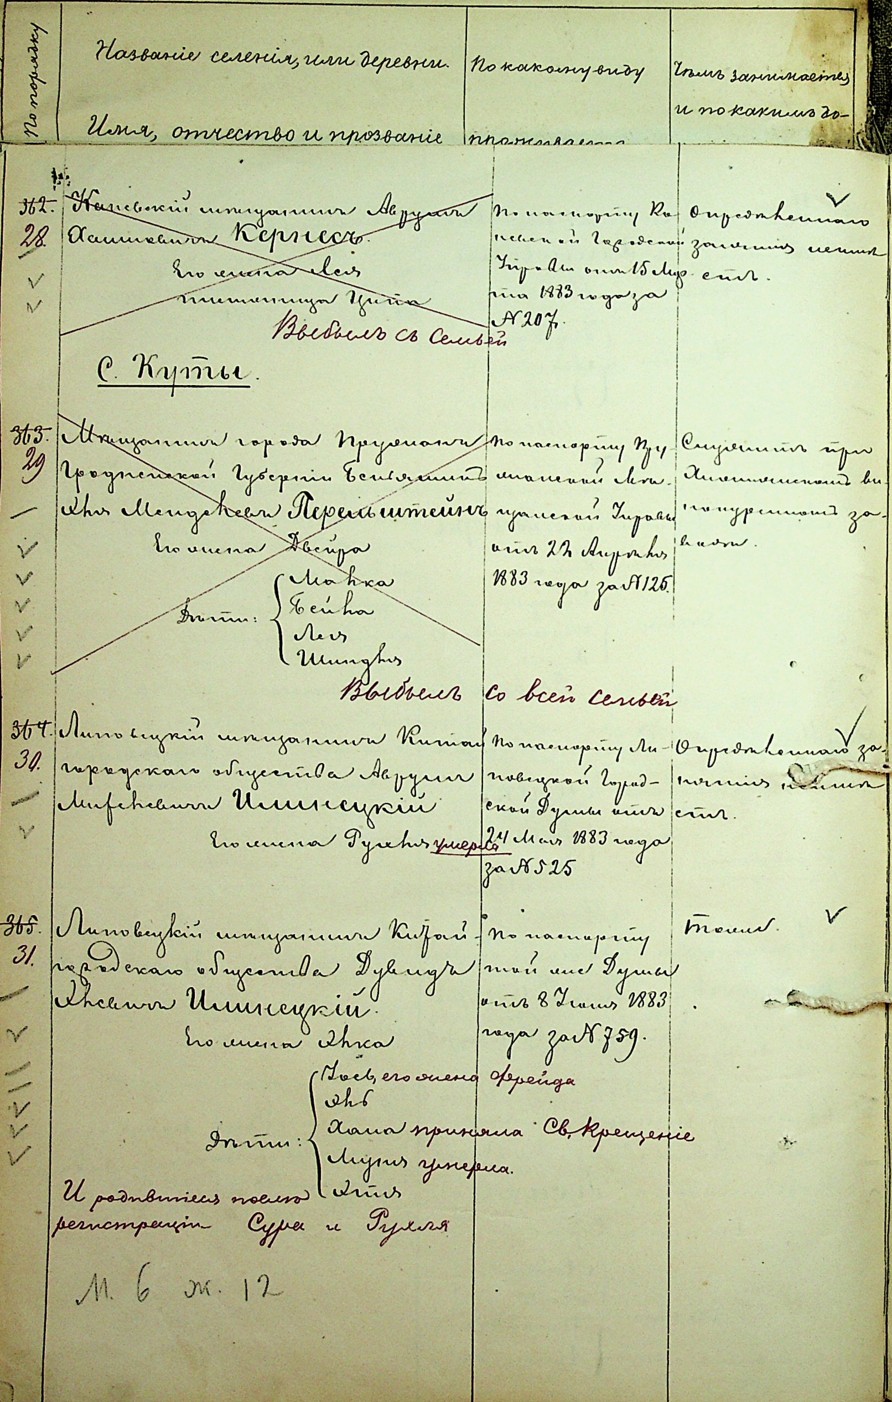 По порядку
Названіе селенія, или деревни.
Имя, отчество и прозваніе
По какому виду
проживаетъ
Чѣмъ занимается
и по какимъ до-
362.
28.
Каневскій мѣщанинъ Аврумъ
Хаимовичъ Кернесъ.
Его жена Лея
племянница Ципа
Выбылъ съ семьей
по паспорту Ка-
невской Городской
Управы отъ 15 Мар-
та 1883 года за
№ 207.
Опредѣленнаго
занятія неимѣ-
етъ.
С. Куты.
363.
29
Мѣщанинъ города Пружаны
Гродненской Губерніи Беньяминъ
Менделевъ Перельштейнъ
Его жена Двейра
Дѣти:
Малка
Бейла
Лея
Шиндля
Выбылъ со всей семьей
по паспорту Пру-
жанской Мѣ-
щанской Управы
отъ 22 Апрѣля
1883 года за № 125.
Служитъ при
ви-
нокуренномъ за-
водѣ.
364.
30.
Липовецкій мѣщанинъ Китай
городскаго общества Аврумъ
Илинецкій
Его жена Рухля умерла
По паспорту Ли-
повецкой Город-
ской Думы отъ
24 Мая 1883 года
за № 525
Опредѣленнаго за-
нятія неимѣ-
етъ.
365.
31.
Липовецкій мѣщанинъ Китай-
городскаго общества Дувидъ
Илинецкій.
Его жена Элка
По паспорту
той же Думы
отъ 8 Іюня 1883
года за № 759.
Тоже.
Дѣти:
Іось, его жена Фрейда
Хана приняла Св. Крещеніе
умерла.
Этя
И родившіеся послѣ
регистраціи Сура и Рухля
М. 6 ж. 12